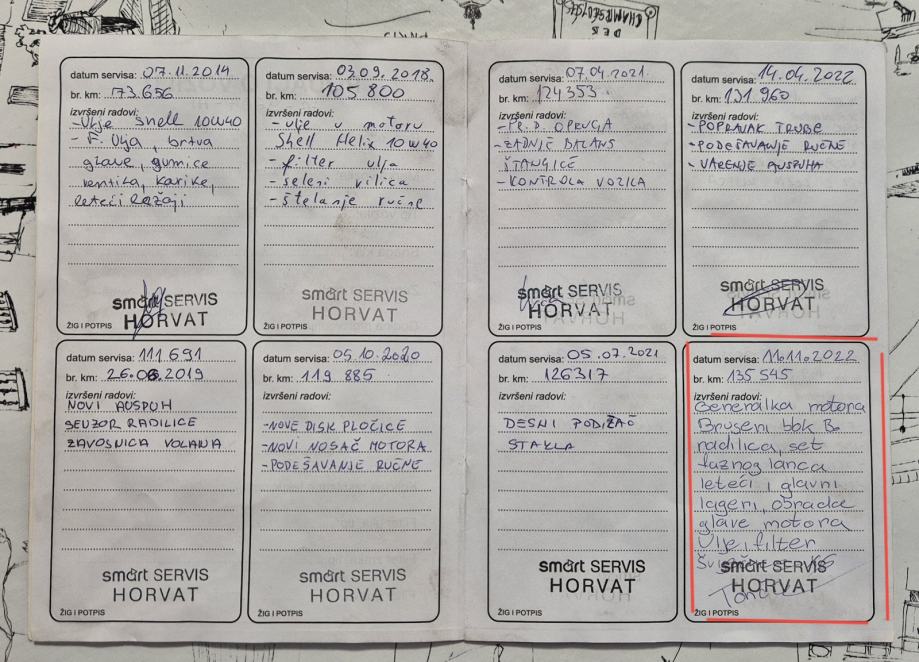 datum servisa: 07.11.2014
br. km: 73.656
izvršeni radovi:
-Ulje Shell 10W40
- F. Ulja, brtva
glave, gumice
ventila, karike,
leteći ležaji
smart SERVIS
HORVAT
ŽIG I POTPIS
datum servisa: 03.09.2018.
br. km: 105 800
izvršeni radovi:
- ulje u motoru
Shell Helix 10W40
- filter ulja
- seleni vilica
- štelanje ručne
smart SERVIS
HORVAT
ŽIG I POTPIS
datum servisa: 07.04.2021.
br. km: 124353
izvršeni radovi:
- PR. D. OPRUGA
- ZADNJE BALANS
ŠTANGICE
- KONTROLA VOZILA
smart SERVIS
HORVAT
ŽIG I POTPIS
datum servisa: 14.04.2022
br. km: 131 960
izvršeni radovi:
- POPRAVAK TRUBE
- PODEŠAVANJE RUČNE
- VARENJE AUSPUHA
smart SERVIS
HORVAT
ŽIG I POTPIS
datum servisa: 111.691
br. km: 26.06.2019
izvršeni radovi:
NOVI AUSPUH
SEUZOR RADILICE
ZAVOSNICA VOLANA
smart SERVIS
HORVAT
ŽIG I POTPIS
datum servisa: 05.10.2020
br. km: 119 885
izvršeni radovi:
-NOVE DISK PLOČICE
-NOVI NOSAČ MOTORA
-PODEŠAVANJE RUČNE
smart SERVIS
HORVAT
ŽIG I POTPIS
datum servisa: 05.07.2021
br. km: 126317
izvršeni radovi:
DESNI PODIZAČ
STAKLA
smart SERVIS
HORVAT
ŽIG I POTPIS
datum servisa: 11.11.2022
br. km: 135 545
izvršeni radovi:
Generalka motora
Brušeni blok
radilica, set
laznog lanca
leteći i glavni
lageri, obrada
glave motora
Ulje i filter
smart SERVIS
HORVAT
ŽIG I POTPIS